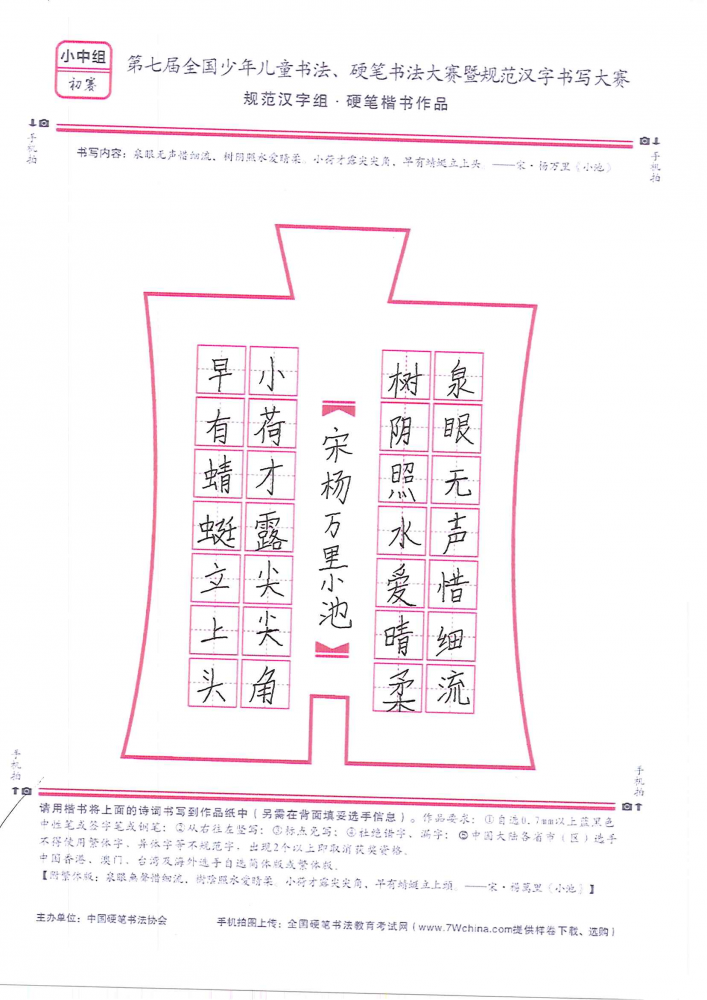 小中组
初赛
第七届全国少年儿童书法、硬笔书法大赛暨规范汉字书写大赛
规范汉字组·硬笔楷书作品
手机拍
手机拍
书写内容：泉眼无声惜细流，树阴照水爱晴柔。小荷才露尖尖角，早有蜻蜓立上头。——宋·杨万里《小池》
泉眼无声惜细流
树阴照水爱晴柔
宋杨万里小池
小荷才露尖尖角
早有蜻蜓立上头
手机拍
手机拍
请用楷书将上面的诗词书写到作品纸中（另需在背面填妥选手信息）。作品要求：①自选0.7mm以上蓝黑色
中性笔或签字笔或钢笔；②从右往左竖写；③标点免写；④杜绝错字、漏字；⑤中国大陆各省市（区）选手
不得使用繁体字、异体字等不规范字，出现2个以上即取消获奖资格。
中国香港、澳门、台湾及海外选手自选简体版或繁体版。
【附繁体版：泉眼無聲惜細流，樹陰照水愛晴柔。小荷才露尖尖角，早有蜻蜓立上頭。——宋·楊萬里《小池》】
主办单位：中国硬笔书法协会
手机拍图上传：全国硬笔书法教育考试网（www.7Wchina.com提供样卷下载、选购）